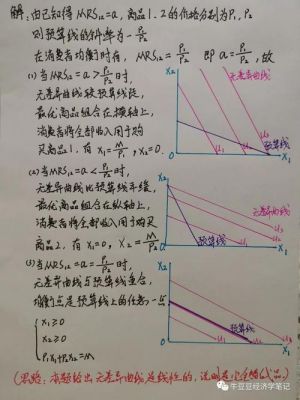 解:由已知得 MRS₁₂=a, 商品1、2的价格分别为P₁、P₂
则预算线的斜率为 -P₁/P₂
在消费者均衡时有, MRS₁₂=P₁/P₂ 即 a=P₁/P₂, 故
(1)当MRS₁₂=a>P₁/P₂时,
无差异曲线较预算线陡,
最优商品组合在横轴上,
消费者将全部收入用于购
买商品1. 有 x₁=M/P₁, x₂=0.
X₂
无差异曲线
预算线
0
u₁
u₂
u₃
X₁
(2)当MRS₁₂=a<P₁/P₂时,
无差异曲线比预算线平缓,
最优商品组合在纵轴上,
消费者将全部收入用于购买
商品2. 有 x₁=0, X₂=M/P₂
X₂
无差异曲线
预算线
0
u₁
u₂
u₃
X₁
(3)当MRS₁₂=a=P₁/P₂时,
无差异曲线与预算线重合,
均衡点是预算线上的任意一点
x₁≥0
x₂≥0
P₁x₁+P₂x₂=M
X₂
预算线
0
u₁
u₂
u₃
X₁
(思路:本题给出无差异曲线是线性的,说明是完全替代品.)
牛豆豆经济学笔记